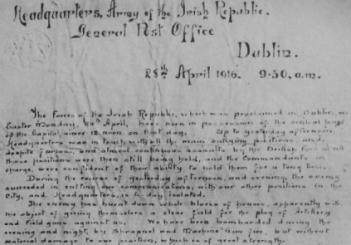 Headquarters, Army of the Irish Republic,
General Post Office
Dublin.
28th April 1916. 9-30. a.m.
The Forces of the Irish Republic, which was proclaimed in Dublin, on
Easter Monday, 24th April, have been in possession of the central part
of the Capital, since 12 noon on that day. Up to yesterday afternoon
Headquarters was in touch with all the main outlying positions, and,
despite furious, and almost continuous assaults by the British Forces all
those positions were then still being held, and the Commandants in
charge were confident of their ability to hold them for a long time.
During the course of yesterday afternoon, and evening, the enemy
succeeded in cutting our communications with our other positions in the
City, and Headquarters is to-day isolated.
The enemy has burnt down whole blocks of houses, apparently with
the object of giving themselves a clear field for the play of Artillery
and Field guns against us. We have been bombarded during the
evening and night, by Shrapnel and Machine Gun fire, but without
material damage to our position, which is of great strength.